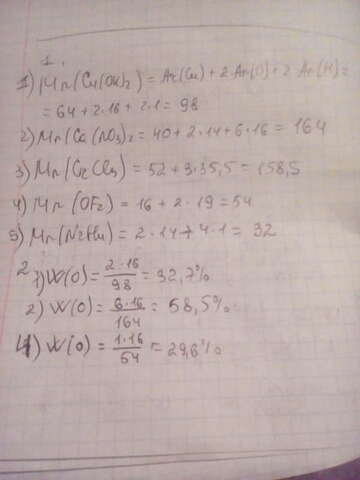 1.
1) Mr(Cu(OH)2) = Ar(Cu) + 2·Ar(O) + 2·Ar(H) =
= 64 + 2·16 + 2·1 = 98
2) Mr(Ca(NO3)2 = 40 + 2·14 + 6·16 = 164
3) Mr(CrCl3) = 52 + 3·35,5 = 158,5
4) Mr(OF2) = 16 + 2·19 = 54
5) Mr(N2H4) = 2·14 + 4·1 = 32
2 1) W(O) = 2·16/98 = 32,7%
2) W(O) = 6·16/164 = 58,5%
4) W(O) = 1·16/54 = 29,6%